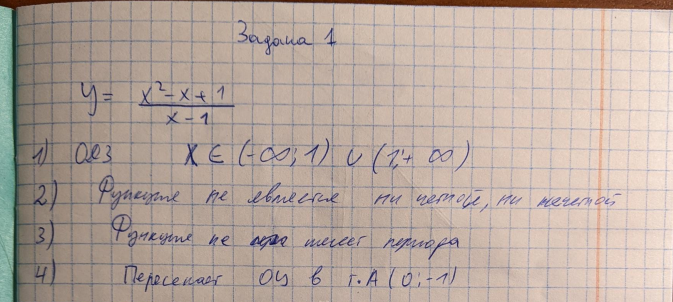 Задача 1
y = x²-x+1 / x-1
1) ОДЗ x ∈ (-∞; 1) ∪ (1; +∞)
2) Функция не является ни четной, ни нечетной
3) Функция не имеет периода
4) Пересекает Oy в т.A (0; -1)